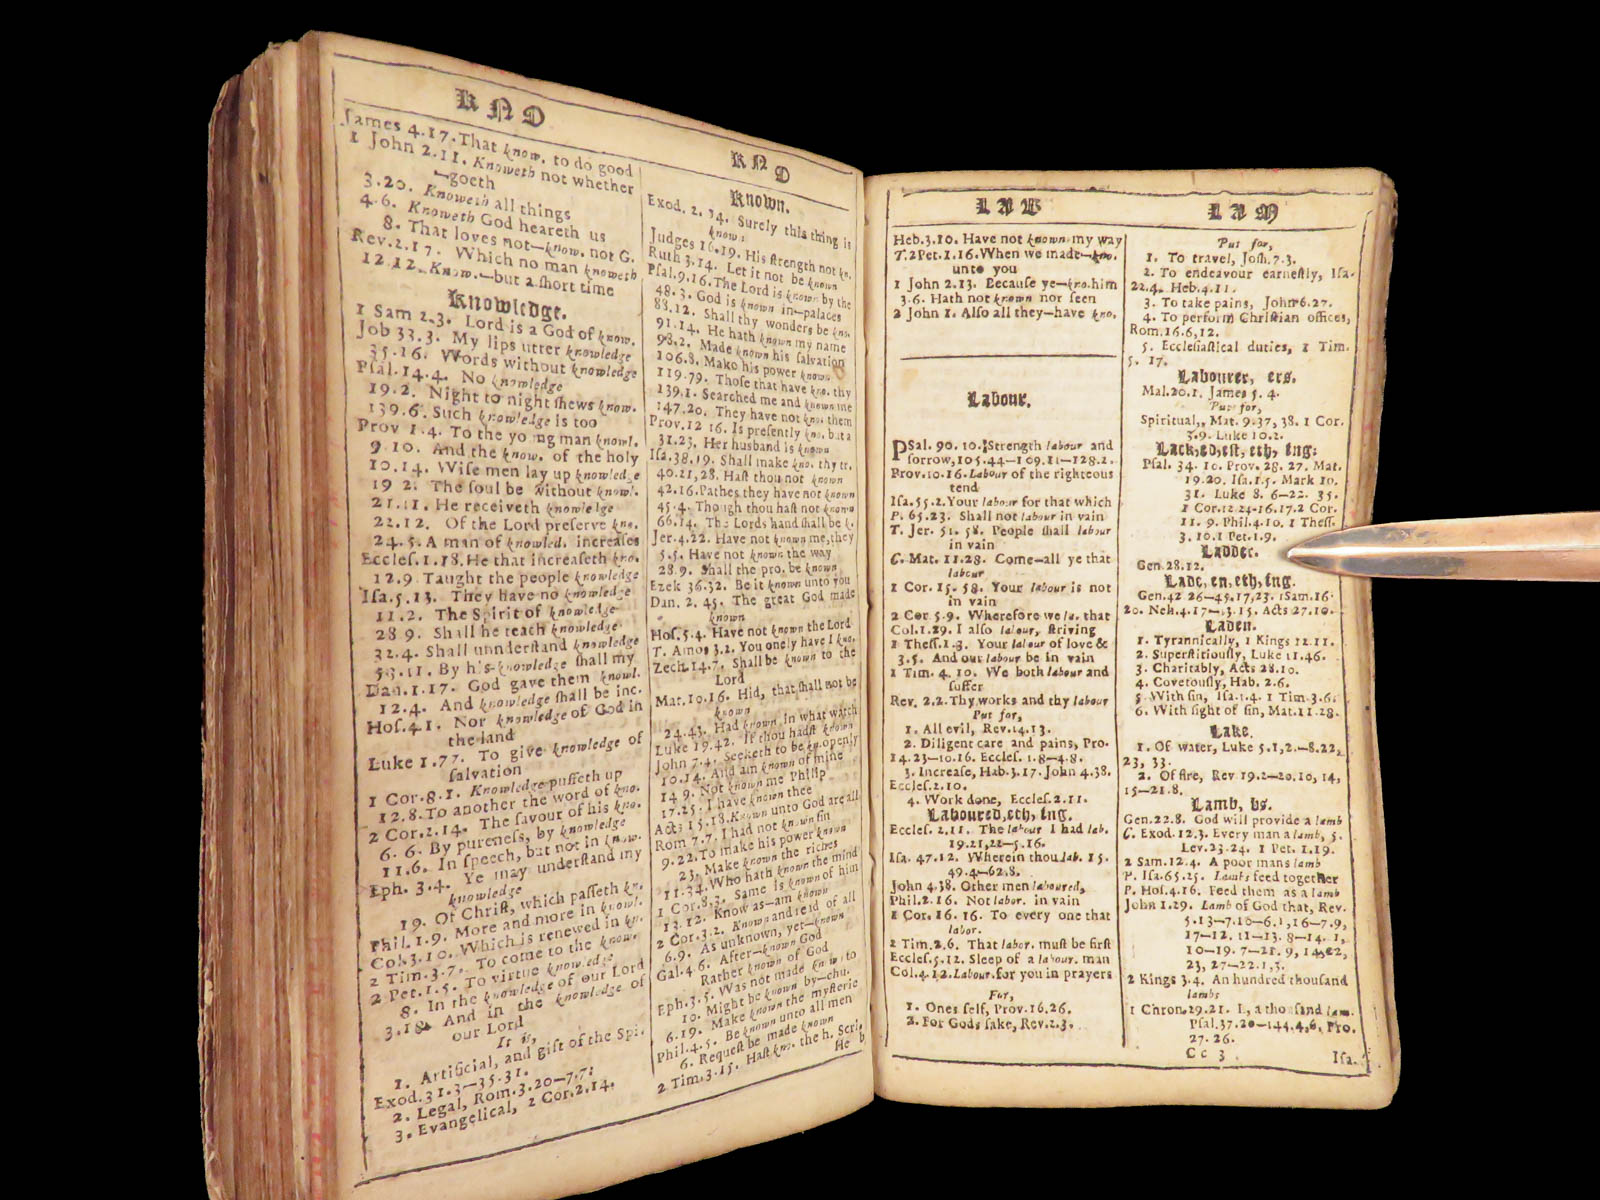 KNO
James 4.17. That know. to do good
1 John 2.11. Knoweth not whether
—goeth
3.20. Knoweth all things
4.6. Knoweth God heareth us
8. That loves not—know. not G.
Rev.2.17. Which no man knoweth
12.12. Know.—but a short time
Knowledge.
1 Sam 2.3. Lord is a God of know.
Job 33.3. My lips utter knowledge
35.16. Words without knowledge
Psal.14.4. No knowledge
19.2. Night to night shews know.
139.6. Such knowledge is too
Prov 1.4. To the young man knowl.
9.10. And the know. of the holy
10.14. Wise men lay up knowledge
19 2. The soul be without knowl.
21.11. He receiveth knowledge
22.12. Of the Lord preserve kno.
24.5. A man of knowled. increases
Eccles.1.18. He that increaseth kno.
12.9 Taught the people knowledge
Isa.5.13. They have no knowledge
11.2. The Spirit of knowledge
28 9. Shall he teach knowledge
32.4. Shall unnderstand knowledge
53.11. By his knowledge shall my
Dan.1.17. God gave them knowl.
12.4. And knowledge shall be inc.
Hos.4.1. Nor knowledge of God in
the land
Luke 1.77. To give knowledge of
salvation
1 Cor.8.1. Knowledge puffeth up
12.8. To another the word of kno.
2 Cor.2.14. The savour of his kno.
6.6. By pureness, by knowledge
11.6. In speech, but not in know.
Eph. 3.4. Ye may understand my
knowledge
19. Of Christ, which passeth kn.
Phil.1.9. More and more in knowl.
Col.3.10. Which is renewed in kn.
2 Tim.3.7. To come to the know.
2 Pet.1.5. To virtue knowledge
8. In the knowledge of our Lord
3.18. And in the knowledge of
our Lord
It is,
1. Artificial, and gift of the Spi.
Exod.31.3—35.31.
2. Legal, Rom.3.20—7.7:
3. Evangelical, 2 Cor.2.14.
KNO
Known.
Exod. 2. 14. Surely this thing is
know:
Judges 16.19. His strength not kn.
Ruth 3.14. Let it not be known
Psal.9.16. The Lord is known by the
48.3. God is known in—palaces
88.12. Shall thy wonders be kno.
91.14. He hath known my name
98.2. Made known his salvation
106.8. Make his power known
119.79. Those that have kno. thy
139.1. Searched me and known me
147.20. They have not kno. them
Prov.12 16. Is presently kno. but a
31.23. Her husband is known
Isa.38.19. Shall make kno. thy tr.
40.21,28. Hast thou not known
42.16. Pathes they have not known
45.4. Though thou hast not known
66.14. The Lords hand shall be k.
Jer.4.22. Have not known me, they
5.5. Have not known the way
28.9. Shall the pro. be known
Ezek 36.32. Be it known unto you
Dan. 2. 45. The great God made
known
Hos.5.4. Have not known the Lord
T. Amos 3.2. You onely have I kno.
Zech.14.7. Shall be known to the
Lord
Mat.10.16. Hid, that shall not be
known
24.43. Had known in what watch
Luke 19.42. If thou hadst known
John 7.4. Seeketh to be kn. openly
10.14. And am known of mine
14 9. Not known me Philip
17.25. I have known thee
Acts 15.18. Known unto God are all
Rom 7.7. I had not known sin
9.22. To make his power known
23. Make known the riches
11.34. Who hath known the mind
1 Cor.8.3. Same is known of him
13.12. Know as—am known
2 Cor.3.2. Known and read of all
6.9. As unknown, yet—known
Gal.4 6. After—known God
Rather known of God
Eph.3.5. Was not made known to
10. Might be known by—chu.
6.19. Make known the mysterie
Phil.4.5. Be known unto all men
6. Request be made known
2 Tim.3.15. Hast kno. the h. Scri.
He b
LAB
Heb.3.10. Have not known my way
T. 2 Pet.1.16. When we made—kno.
unto you
1 John 2.13. Because ye—kno. him
3.6. Hath not known nor seen
2 John 1. Also all they—have kno.
Labour.
PSal. 90. 10. Strength labour and
sorrow, 105.44—109.11—128.2.
Prov.10.16. Labour of the righteous
tend
Isa.55.2. Your labour for that which
P. 65.23. Shall not labour in vain
T. Jer. 51. 58. People shall labour
in vain
C. Mat. 11.28. Come—all ye that
labour
1 Cor. 15. 58. Your labour is not
in vain
2 Cor 5.9. Wherefore we la. that
Col.1.29. I also labour, striving
1 Thess.1.3. Your labour of love &
3.5. And our labour be in vain
1 Tim. 4. 10. We both labour and
suffer
Rev. 2.2. Thy works and thy labour
Put for,
1. All evil, Rev.14.13.
2. Diligent care and pains, Pro.
14.23—10.16. Eccles. 1.8—4.8.
3. Increase, Hab.3.17. John 4.38.
Eccles.2.10.
4. Work done, Eccles.2.11.
Laboured, eth, ing.
Eccles. 2.11. The labour I had lab.
19.21,22—5.16.
Isa. 47.12. Wherein thou lab. 15.
49.4—62.8.
John 4.38. Other men laboured,
Phil.2.16. Not labor. in vain
1 Cor. 16. 16. To every one that
labor.
2 Tim.2.6. That labor. must be first
Eccles.5.12. Sleep of a labour. man
Col.4.12. Labour. for you in prayers
For,
1. Ones self, Prov.16.26.
2. For Gods sake, Rev.2.3.
LAM
Put for,
1. To travel, Josh.7.3.
2. To endeavour earnestly, Isa.
22.4. Heb.4.11.
3. To take pains, John 6.27.
4. To perform Christian offices,
Rom.16.6,12.
5. Ecclesiastical duties, 1 Tim.
5. 17.
Labourer, ers.
Mal.20.1. James 5. 4.
Put for,
Spiritual,, Mat. 9.37, 38. 1 Cor.
3.9. Luke 10.2.
Lack, ed, est, eth, ing:
Psal. 34. 10. Prov. 28. 27. Mat.
19.20. Isa.1.5. Mark 10.
31. Luke 8. 6—22. 35.
1 Cor.12.24-16.17.2 Cor.
11. 9. Phil.4.10. 1 Thess.
3. 10.1 Pet.1.9.
Ladder.
Gen.28.12.
Lade, en, eth, ing.
Gen.42 26—45.17,23. 1Sam.16.
20. Neh.4.17—13.15. Acts 27.10.
Laden.
1. Tyrannically, 1 Kings 12.11.
2. Superstitiously, Luke 11.46.
3. Charitably, Acts 28.10.
4. Covetously, Hab. 2.6.
5 With sin, Isa.1.4. 1 Tim.3.6.
6. With sight of sin, Mat.11.28.
Lake.
1. Of water, Luke 5.1,2.—8.22,
23, 33.
2. Of fire, Rev 19.2—20.10, 14,
15—21.8.
Lamb, bs.
Gen.22.8. God will provide a lamb
C. Exod. 12.3. Every man a lamb, 5.
Lev.23.24. 1 Pet. 1.19.
2 Sam.12.4. A poor mans lamb
P. Isa.65.25. Lambs feed together
P. Hos.4.16. Feed them as a lamb
John 1.29. Lamb of God that, Rev.
5.13—7.10—6.1,16—7.9,
17—12. 11—13. 8—14. 1,
10—19. 7—21. 9, 14,22,
23, 27—22.1,3.
2 Kings 3.4. An hundred thousand
lambs
1 Chron.29.21. L, a thousand lam.
Psal.37.20—144.4,6, Pro.
27.26.
Cc 3
Isa.